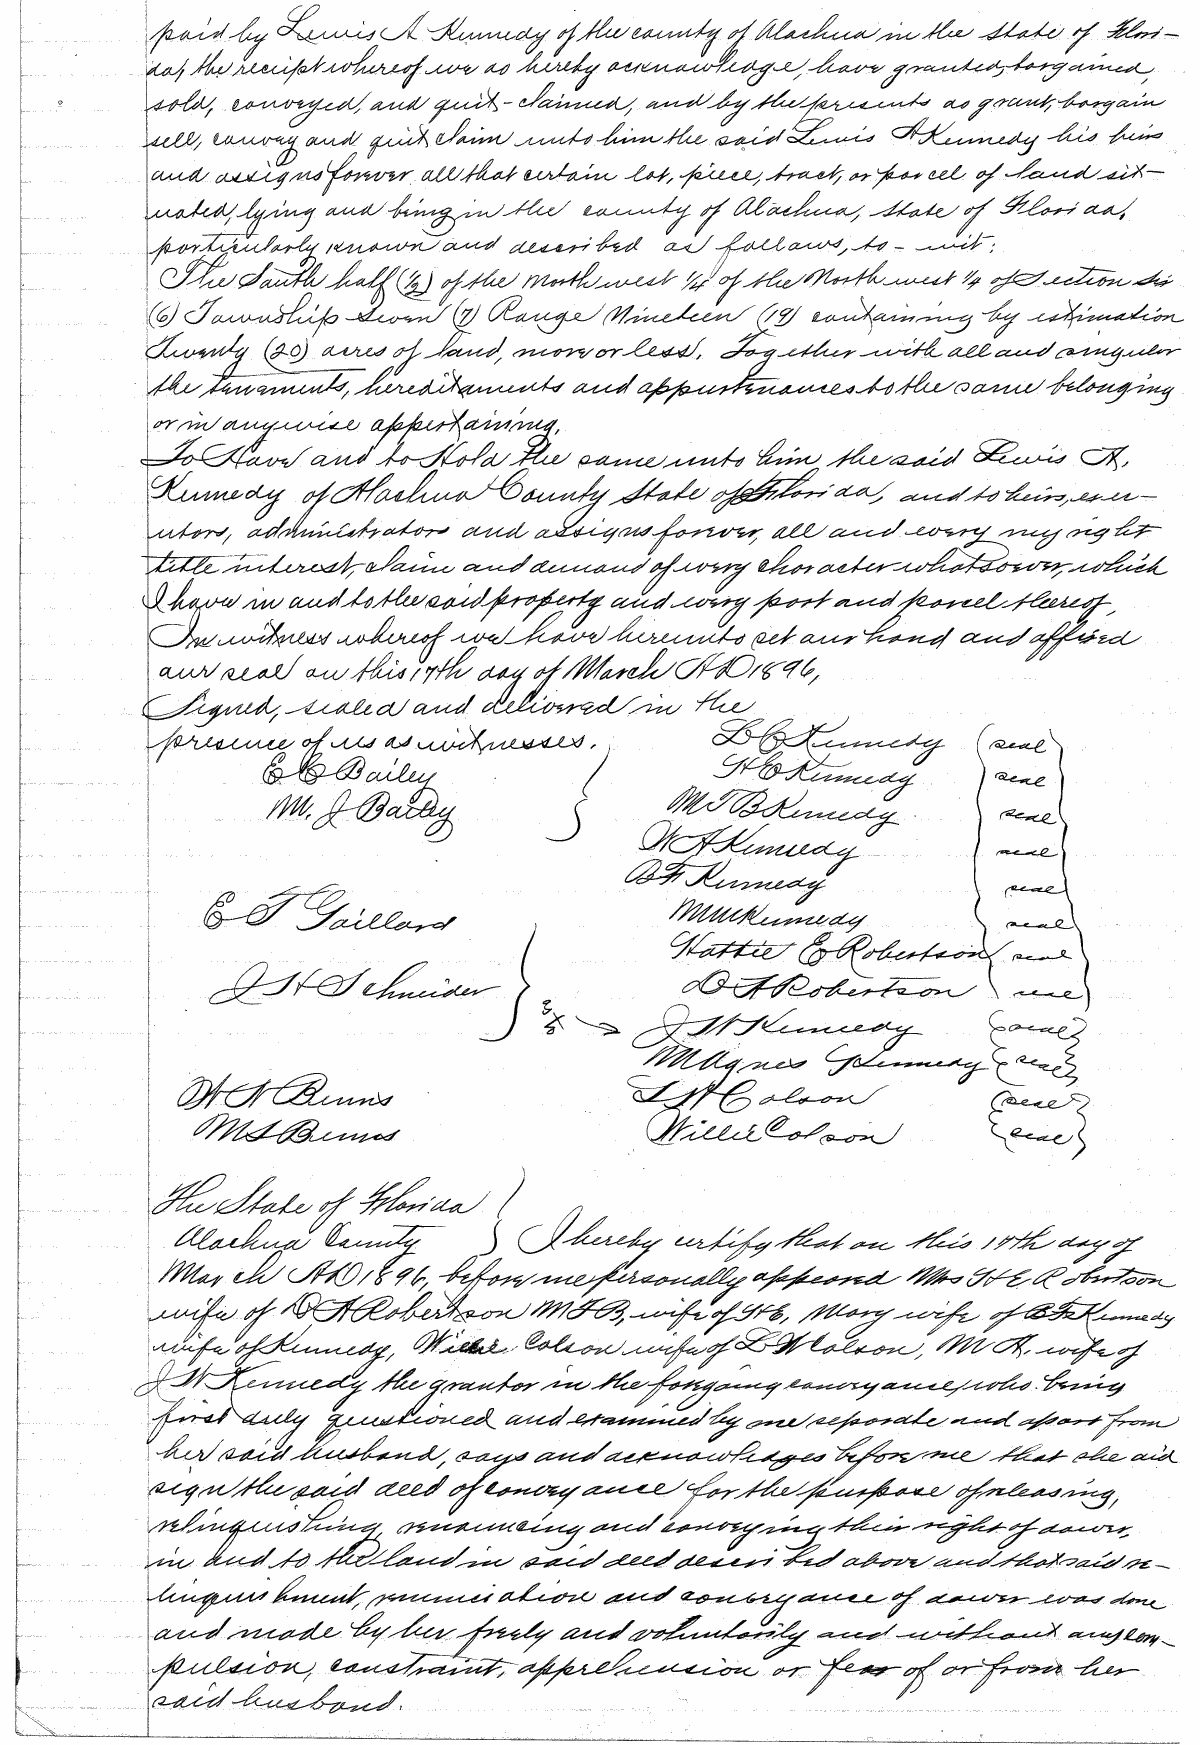 paid by Lewis A Kennedy of the county of Alachua in the State of Flori-
da, the receipt whereof we do hereby acknowledge, have granted, bargained,
sold, conveyed, and quit-claimed, and by the presents do grant, bargain
sell, convey and quit claim unto him the said Lewis A Kennedy his heirs
and assigns forever all that certain lot, piece, tract, or parcel of land sit-
uated, lying and being in the county of Alachua, State of Florida,
particularly known and described as follows, to-wit:
The South half (½) of the North west ¼ of the North west ¼ of Section Six
(6) Township Seven (7) Range Nineteen (19) containing by estimation
Twenty (20) acres of land, more or less. Together with all and singular
the tenements, hereditaments and appurtenances to the same belonging
or in anywise appertaining.
To Have and to Hold the same unto him the said Lewis A.
Kennedy of Alachua County State of Florida, and to heirs, exer-
utors, administrators and assigns forever, all and every my right
title interest, claim and demand of every character whatsoever, which
I have in and to the said property and every part and parcel thereof,
In witness whereof we have hereunto set our hand and affixed
our seal on this 17th day of March AD 1896,
Signed, sealed and delivered in the
presence of us as witnesses.
L C Kennedy (seal)
E C Bailey
H E Kennedy (seal)
M. J Bailey
M J B Kennedy (seal)
W A Kennedy (seal)
B F Kennedy (seal)
E J Gaillard
M M Kennedy (seal)
Hattie E Robertson (seal)
J H Schneider
D A Robertson (seal)
J W Kennedy (seal)
M Agnes Kennedy (seal)
W N Bunns
L W Colson (seal)
M L Bunns
Willie Colson (seal)
The State of Florida
Alachua County I hereby certify that on this 17th day of
March AD 1896, before me personally appeared Mrs H E Robertson
wife of D A Robertson M J B, wife of H E, Mary wife of B F Kennedy
wife of Kennedy, Willie Colson wife of L W Colson, M A. wife of
J W Kennedy the grantor in the forgoing conveyance, who being
first duly questioned and examined by me separate and apart from
her said husband, says and acknowledges before me that she did
sign the said deed of conveyance for the purpose of releasing,
relinquishing, renouncing and conveying their right of dower,
in and to the land in said deed described above and that said re-
linquishment, renunciation and conveyance of dower was done
and made by her freely and voluntarily and without any com-
pulsion, constraint, apprehension or fear of or from her
said husband.